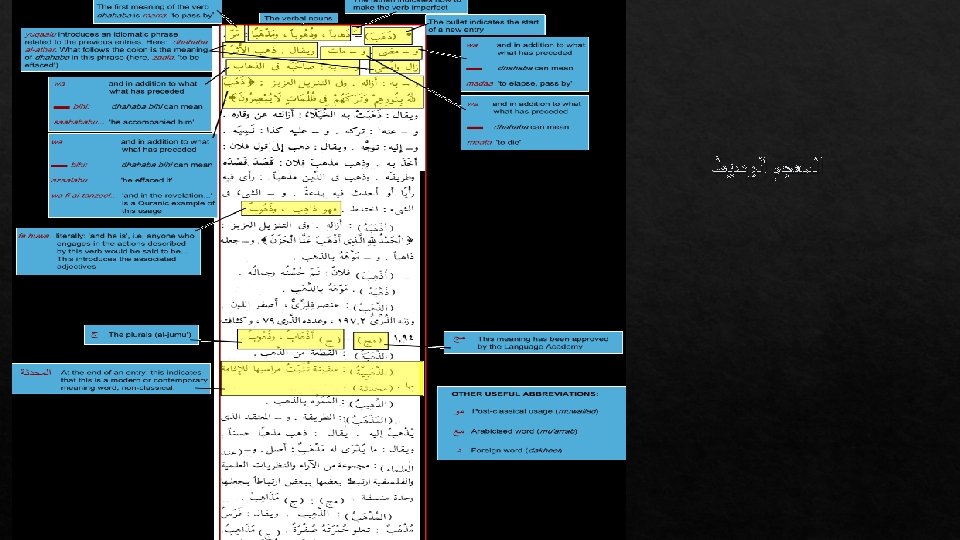 The first meaning of the verb
dhahaba is marra 'to pass by'
The verbal nouns
make the verb imperfect
The bullet indicates the start
of a new entry
yuqaalu introduces an idiomatic phrase
related to the previous entries. Here: dhahaba
al-athar. What follows the colon is the meaning
of dhahaba in this phrase (here, zaala 'to be
effaced')
wa and in addition to what
what has preceded
dhahaba can mean
madaa 'to elapse, pass by'
wa and in addition to what
what has preceded
bihi: dhahaba bihi can mean
saahabahu... 'he accompanied him'
wa and in addition to what
what has preceded
dhahaba can mean
maata 'to die'
wa and in addition to what
what has preceded
bihi: dhahaba bihi can mean
azaalahu 'he effaced it'
wa fi al-tanzeel.. 'and in the revelation...'
is a Quranic example of
this usage
fa huwa literally: 'and he is', i.e. anyone who
engages in the actions described
by this verb would be said to be...
This introduces the associated
adjectives
ج The plurals (al-jumu')
المحدثة At the end of an entry, this indicates
that this is a modern or contemporary
meaning word, non-classical.
مج This meaning has been approved
by the Language Academy
OTHER USEFUL ABBREVIATIONS:
مو Post-classical usage (muwalled)
مع Arabicised word (mu'arrab)
د Foreign word (dakheel)
و – معنى و – مات ويقال : ذهب الأثر
ويقال : ذهبت به الخيلاء : أزالته عن وقاره .
و – عنه : تركه . و – عليه كذا : نسيه .
و – إليه : توجّه . ويقال : ذهب إلى قول فلان :
أخذ به . وذهب مذهبَ فلان : قصد قصده
وطريقته . وذهب في الدّين مذهباً : رأى فيه
رأيًا أو أحدث فيه بدعةً . و – الشيءُ في
الشيء : اختلط . فهو ذاهب ، وذَهُوبٌ .
: أزاله . وفي التنزيل العزيز :
﴿ الْحَمْدُ للهِ الَّذِي أَذْهَبَ عَنَّا الْحَزَنَ ﴾ . و – جعله
ذاهباً . و – مَوَّهَهُ بالذهب .
(أذْهَبَ) فلانٌ : تمّ حُسْنُه وجمالُه .
(ذَهَّبَهُ) . مَوّهَهُ بالذَّهَب .
(الذَّهَبُ) : عنصر فلزّيّ ، أصفر اللون
وزنه الذَّرّيّ ١٩٧,٢ ، وعدده الذّرى ٧٩ ، وكثافته
١٩,٤ (مج) (ج) أذْهَابٌ ، وذُهُوبٌ
: القطعة من الذَّهَب .
: سفينة تَذْهَبُ مراسيها للإقامة
بها . (محدثة) .
(الذَّهِيبُ) : المُمَوَّه بالذهب .
(المَذْهَبُ) : الطريقة . و – المعتقد الذي
يُذْهَبُ إليه . يقال : ذهب مذهباً حسناً
ويقال : ما يُدْرَى له مَذْهَبٌ : أصل . و –
: مجموعة من الآراء والنظريات العلمية
والفلسفية ارتبط بعضها ببعض ارتباطاً يجعلها
وحدة منسقة . (مج) . (ج) مَذَاهِبُ .
(المُذْهَبُ) : الذَّهيب . ويقال : فَرَسٌ
مُذْهَبٌ : تعلو حُمْرَتَهُ صُفْرَةٌ . (ج) مَذَاهِبُ